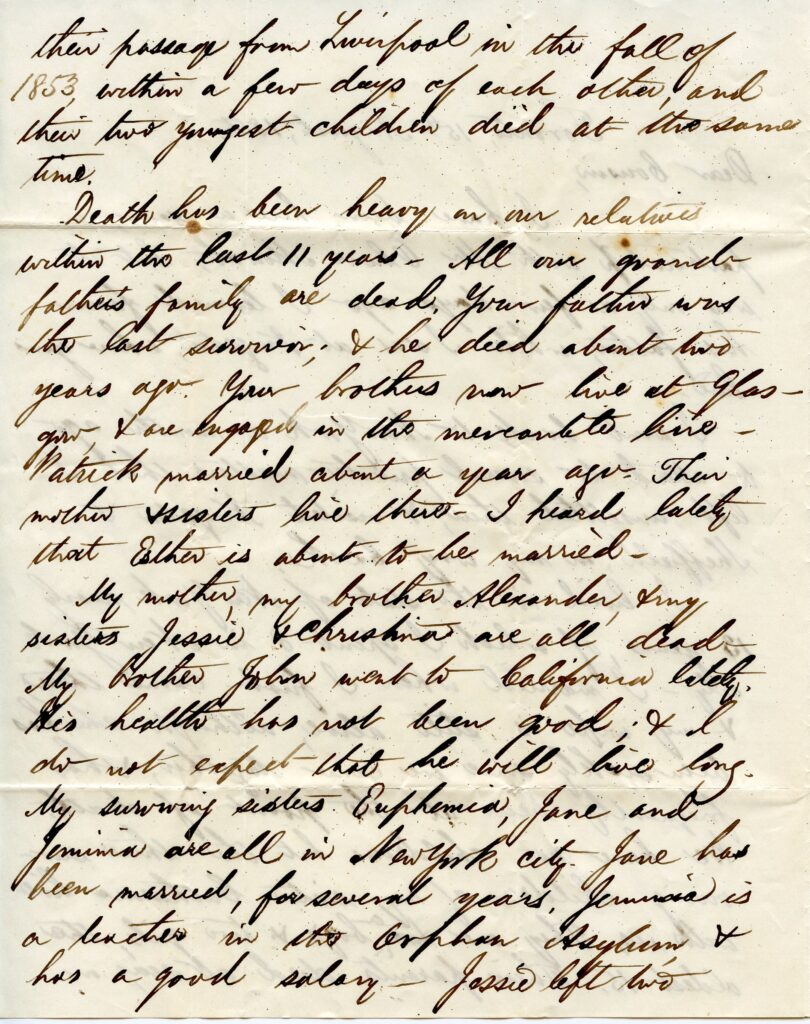 their passage from Liverpool in the fall of
1853, within a few days of each other, and
their two youngest children died at the same
time.
Death has been heavy on our relatives
within the last 11 years – All our grand-
father's family are dead. Your father was
the last survivor; & he died about two
years ago. Your brothers now live at Glas-
gow, & are engaged in the mercantile line –
Patrick married about a year ago. Their
mother & sisters live there – I heard lately
that Esther is about to be married –
My mother, my brother Alexander, & my
sisters Jessie & Christina are all dead –
My brother John went to California lately.
His health has not been good; & I
do not expect that he will live long.
My surviving sisters Euphemia, Jane and
Jemima are all in New York city. Jane has
been married, for several years, Jemima is
a teacher in the Orphan Asylum, &
has a good salary – Jessie left two